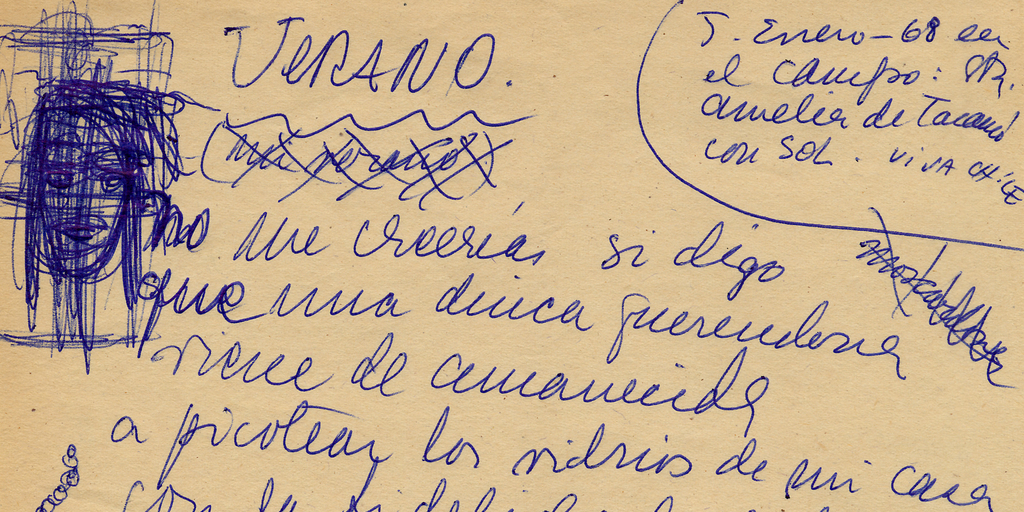 VERANO.
(mi verano)
5. Enero-68 en
el campo: SR.
amelia de Tacamó
con SOL. VIVA CHILE
no me creerías si digo
que una diuca querendona
viene de amanecida
a picotear los vidrios de mi casa
con la